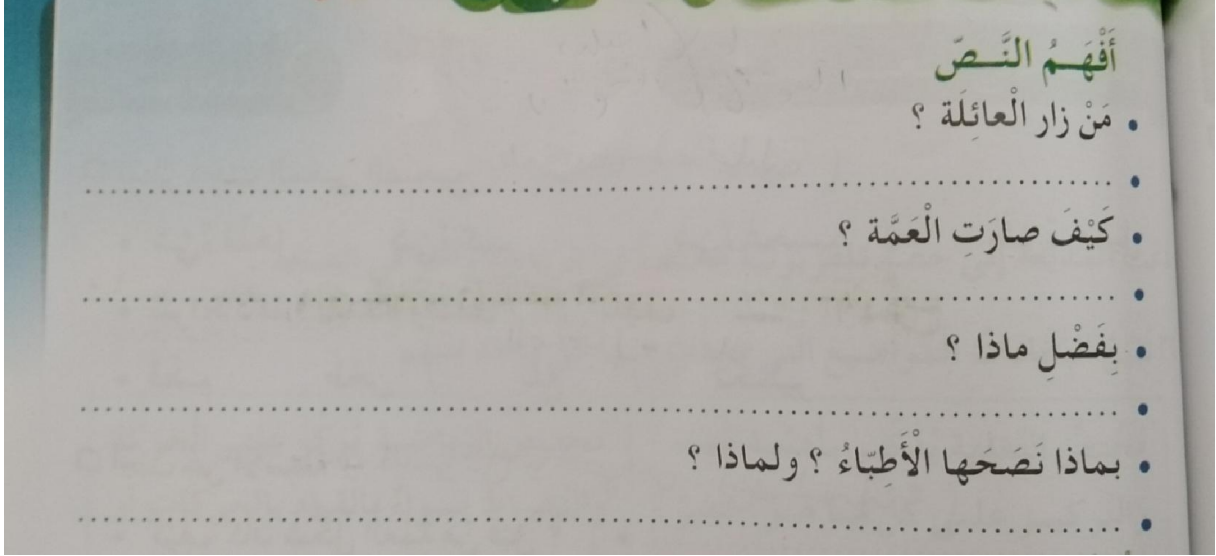 أَفْهَمُ النَّصّ
• مَنْ زار الْعائِلَة ؟
• ........................................................................
• كَيْفَ صارَتِ الْعَمَّة ؟
• ........................................................................
• بِفَضْلِ ماذا ؟
• ........................................................................
• بماذا نَصَحَها الْأَطِبّاءُ ؟ ولماذا ؟
• ........................................................................